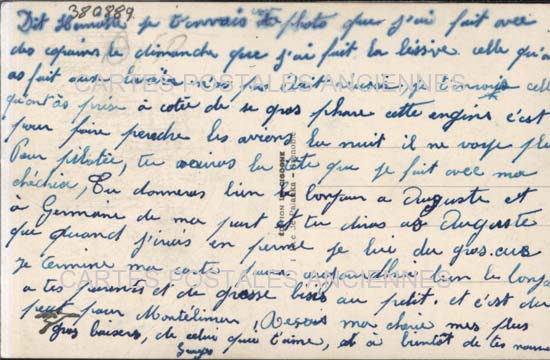 380889.
Dit Henriette je t'envois cette photo que j'ai fait avec
des copains le dimanche que j'ai fait la lessive. celle qu'on
as fait avec n'es pas je t'envois celle
qu'ont às prise à cotée de se gros phare cette engines c'est
pour faire perache les avions la nuit il ne voye plus
Pour pilotée, tu veiras la tête que je fait avec ma
cháchia, Tu donneras bien le bonjour a Auguste et
à Germaine de ma part et tu diras as Auguste
que quand j'irais en perme je lui du gros cus
je termine ma carte pour aujourd'hui bien le bonjour
a tes parents et de grosse bises au petit. et c'est du
peut pour Montélimar, Reçois ma cherie mes plus
gros baisers, de celui que t'aime, et à bientot de tes nouvelles
Georges
CARTES POSTALES ANCIENNES
CARTES POSTALES ANCIENNES